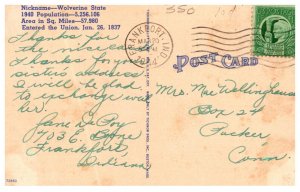 Nickname—Wolverine State
1940 Population—5,256,106
Area in Sq. Miles—57,980
Entered the Union, Jan. 26, 1837
Thanks for
the nice card.
Thanks for your
sisters address
I will be glad
to exchange with
her.
Jane De Poy
703 E.
Frankfort
Indiana
550
FRANKFORT, IND.
POST CARD
Mrs. Mae Wellinghaus
Box 24
Packer
Conn.